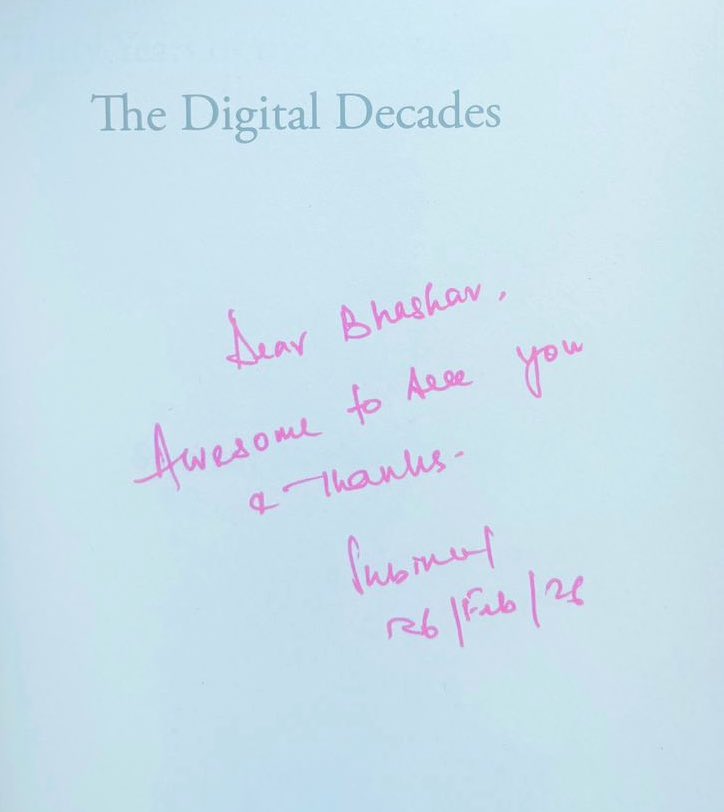 The Digital Decades
Dear Bhashar,
Awesome to see you
& Thanks.
26/Feb/26